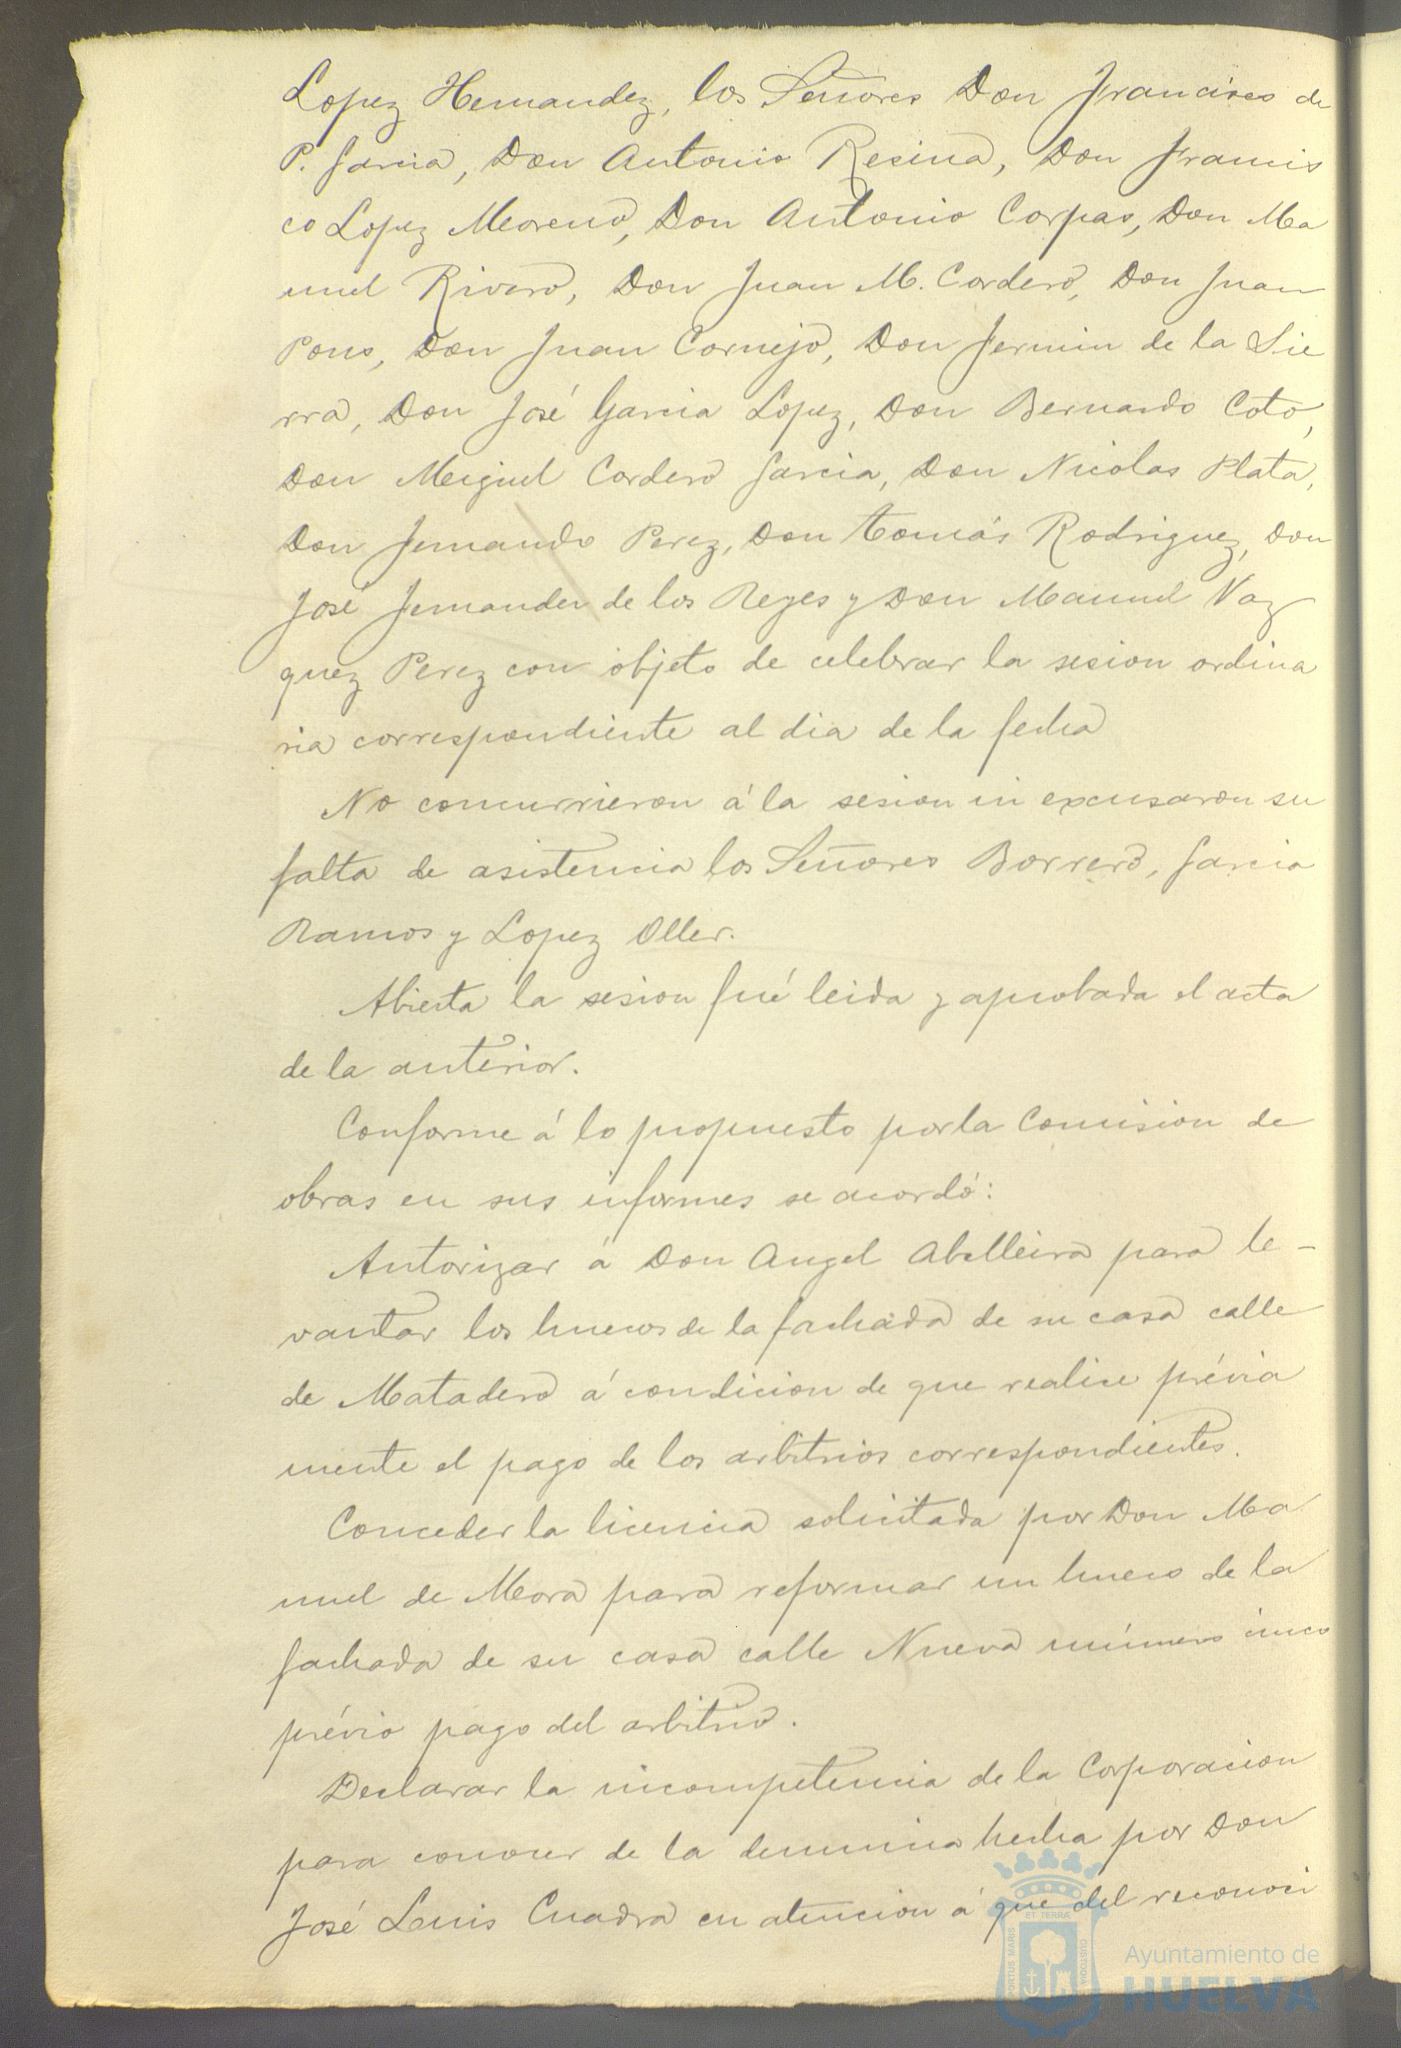 Lopez Hernandez, los Señores Don Francisco de
P. Garcia, Don Antonio Resina, Don Francis
co Lopez Moreno, Don Antonio Corpas, Don Ma
nuel Rivero, Don Juan M. Cordero, Don Juan
Pons, Don Juan Cornejo, Don Fermin de la Sie
rra, Don José Garcia Lopez, Don Bernardo Coto,
Don Miguel Cordero Garcia, Don Nicolas Plata,
Don Fernando Perez, Don Tomás Rodriguez, Don
José Fernandez de los Reyes y Don Manuel Vaz
quez Perez con objeto de celebrar la sesion ordina
ria correspondiente al dia de la fecha
No concurrieron á la sesion ni excusaron su
falta de asistencia los Señores Borrero, Garcia
Ramos y Lopez Oller.
Abierta la sesion fué leida y aprobada el acta
de la anterior.
Conforme á lo propuesto por la Comision de
obras en sus informes se acordó:
Autorizar á Don Angel Abelleira para le-
vantar los huecos de la fachada de su casa calle
de Matadero á condicion de que realice prévia
mente el pago de los arbitrios correspondientes.
Conceder la licencia solicitada por Don Ma
nuel de Mora para reformar un hueco de la
fachada de su casa calle Nueva número cinco
prévio pago del arbitrio.
Declarar la incompetencia de la Corporacion
para conocer de la denuncia hecha por Don
José Luis Cuadra en atencion á que del reconoci
ET TERRÆ
PORTUS MARIS
CUSTODIA
Ayuntamiento de
HUELVA